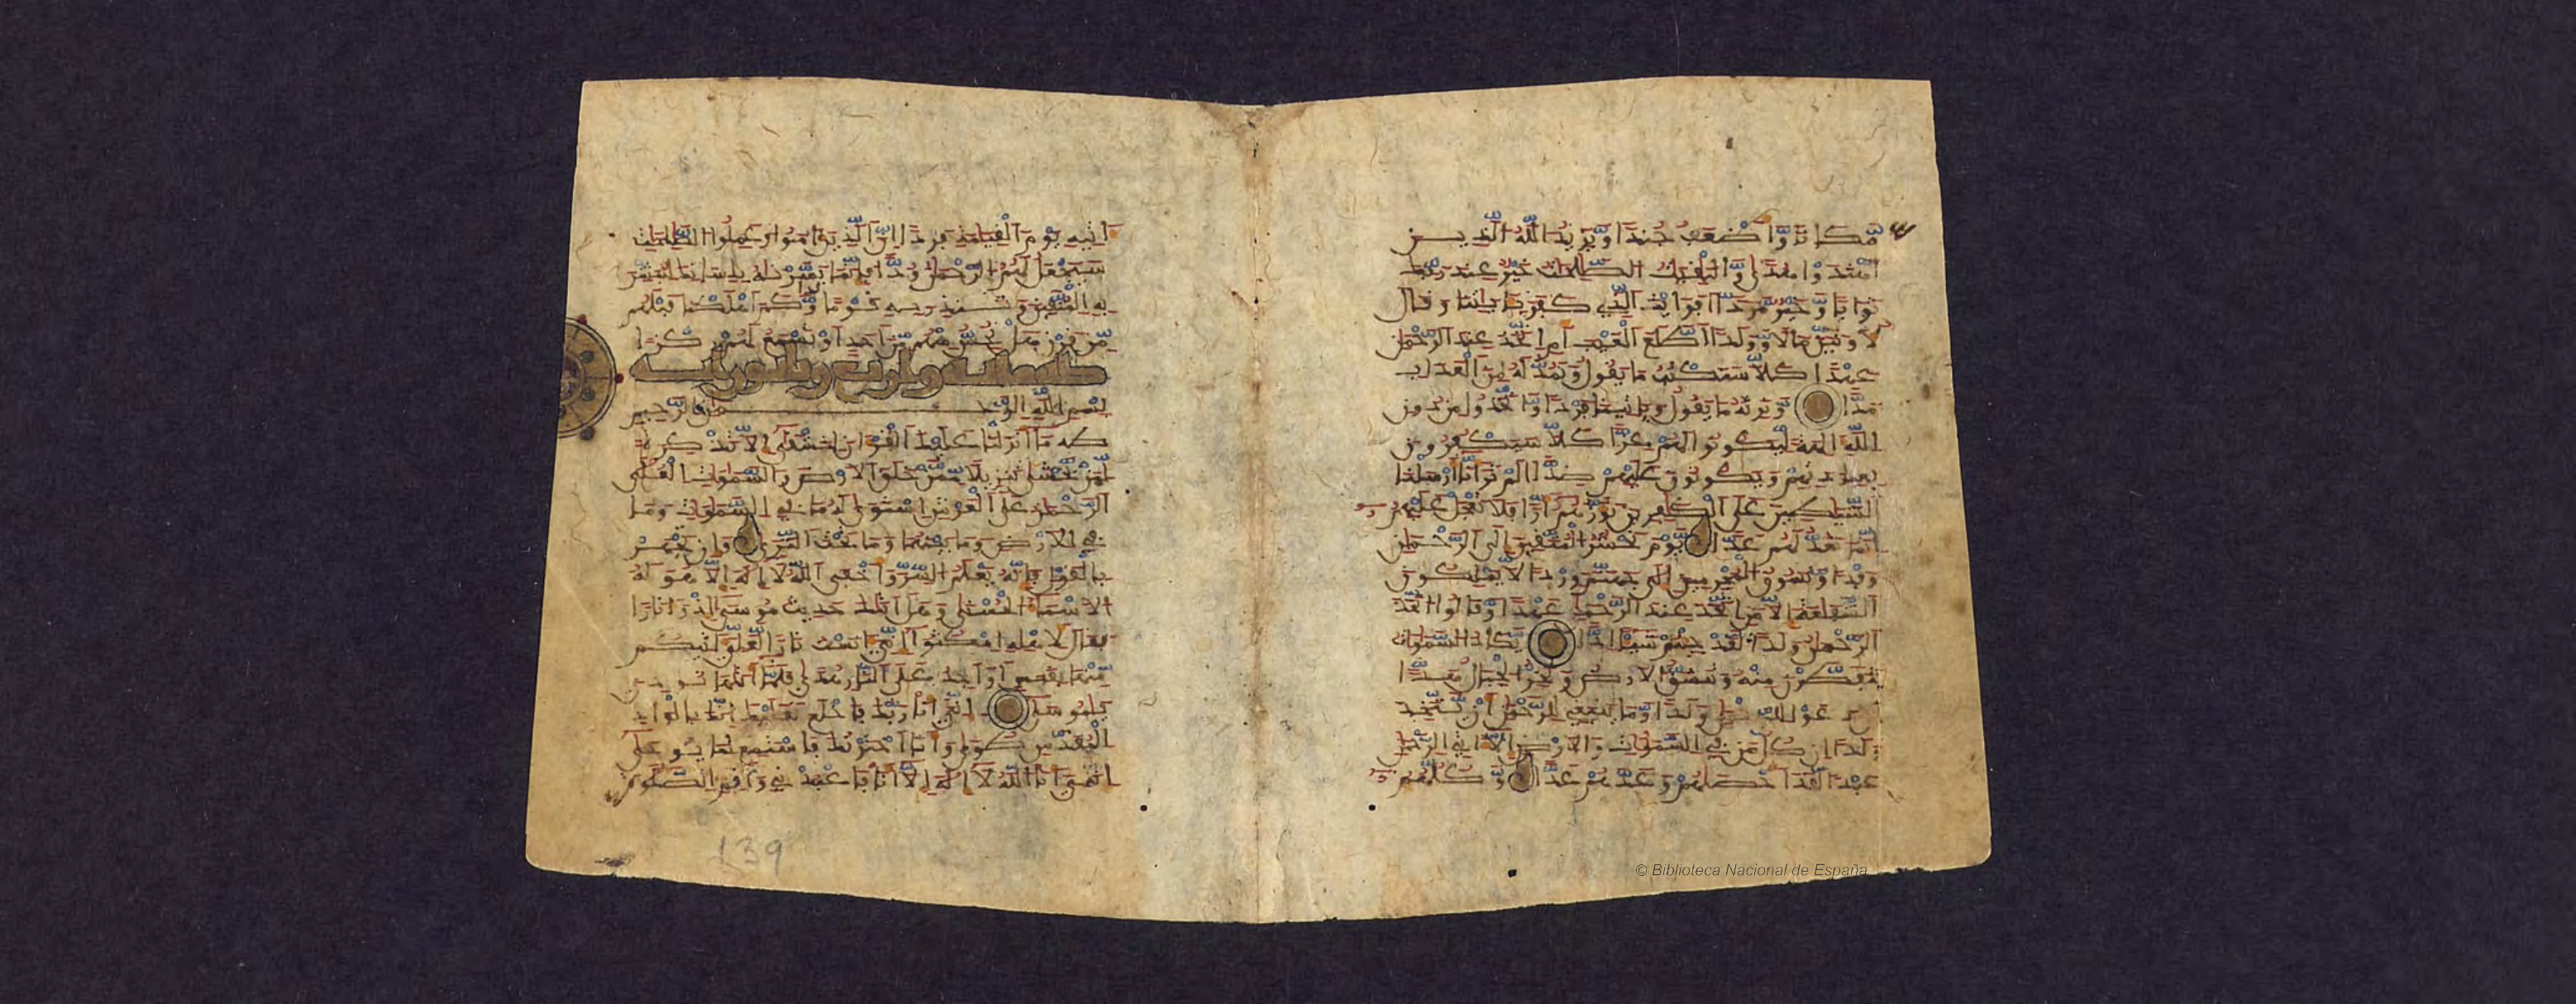 مَّكَانًا وَأَضْعَفُ جُندًا وَيَزِيدُ اللَّهُ الَّذِينَ
اهْتَدَوْا هُدًى وَالْبَٰقِيَٰتُ الصَّٰلِحَٰتُ خَيْرٌ عِندَ رَبِّكَ
ثَوَابًا وَخَيْرٌ مَّرَدًّا أَفَرَأَيْتَ الَّذِي كَفَرَ بِـَٔايَٰتِنَا وَقَالَ
لَأُوتَيَنَّ مَالًا وَوَلَدًا أَطَّلَعَ الْغَيْبَ أَمِ اتَّخَذَ عِندَ الرَّحْمَٰنِ
عَهْدًا كَلَّا سَنَكْتُبُ مَا يَقُولُ وَنَمُدُّ لَهُ مِنَ الْعَذَابِ
مَدًّا وَنَرِثُهُ مَا يَقُولُ وَيَأْتِينَا فَرْدًا وَاتَّخَذُوا مِن دُونِ
اللَّهِ ءَالِهَةً لِّيَكُونُوا لَهُمْ عِزًّا كَلَّا سَيَكْفُرُونَ
بِعِبَادَتِهِمْ وَيَكُونُونَ عَلَيْهِمْ ضِدًّا أَلَمْ تَرَ أَنَّا أَرْسَلْنَا
الشَّيَٰطِينَ عَلَى الْكَٰفِرِينَ تَؤُزُّهُمْ أَزًّا فَلَا تَعْجَلْ عَلَيْهِمْ
إِنَّمَا نَعُدُّ لَهُمْ عَدًّا يَوْمَ نَحْشُرُ الْمُتَّقِينَ إِلَى الرَّحْمَٰنِ
وَفْدًا وَنَسُوقُ الْمُجْرِمِينَ إِلَىٰ جَهَنَّمَ وِرْدًا لَّا يَمْلِكُونَ
الشَّفَٰعَةَ إِلَّا مَنِ اتَّخَذَ عِندَ الرَّحْمَٰنِ عَهْدًا وَقَالُوا اتَّخَذَ
الرَّحْمَٰنُ وَلَدًا لَّقَدْ جِئْتُمْ شَيْـًٔا إِدًّا يَكَادُ السَّمَٰوَٰتُ
يَتَفَطَّرْنَ مِنْهُ وَتَنشَقُّ الْأَرْضُ وَتَخِرُّ الْجِبَالُ هَدًّا
أَن دَعَوْا لِلرَّحْمَٰنِ وَلَدًا وَمَا يَنبَغِي لِلرَّحْمَٰنِ أَن يَتَّخِذَ
وَلَدًا إِن كُلُّ مَن فِي السَّمَٰوَٰتِ وَالْأَرْضِ إِلَّا ءَاتِي الرَّحْمَٰنِ
عَبْدًا لَّقَدْ أَحْصَىٰهُمْ وَعَدَّهُمْ عَدًّا وَكُلُّهُمْ
ءَاتِيهِ يَوْمَ الْقِيَٰمَةِ فَرْدًا إِنَّ الَّذِينَ ءَامَنُوا وَعَمِلُوا الصَّٰلِحَٰتِ
سَيَجْعَلُ لَهُمُ الرَّحْمَٰنُ وُدًّا فَإِنَّمَا يَسَّرْنَٰهُ بِلِسَانِكَ لِتُبَشِّرَ
بِهِ الْمُتَّقِينَ وَتُنذِرَ بِهِ قَوْمًا لُّدًّا وَكَمْ أَهْلَكْنَا قَبْلَهُم
مِّن قَرْنٍ هَلْ تُحِسُّ مِنْهُم مِّنْ أَحَدٍ أَوْ تَسْمَعُ لَهُمْ رِكْزًا
بِسْمِ اللَّهِ الرَّحْمَٰنِ الرَّحِيمِ
طه مَا أَنزَلْنَا عَلَيْكَ الْقُرْءَانَ لِتَشْقَىٰ إِلَّا تَذْكِرَةً
لِّمَن يَخْشَىٰ تَنزِيلًا مِّمَّنْ خَلَقَ الْأَرْضَ وَالسَّمَٰوَٰتِ الْعُلَى
الرَّحْمَٰنُ عَلَى الْعَرْشِ اسْتَوَىٰ لَهُ مَا فِي السَّمَٰوَٰتِ وَمَا
فِي الْأَرْضِ وَمَا بَيْنَهُمَا وَمَا تَحْتَ الثَّرَىٰ وَإِن تَجْهَرْ
بِالْقَوْلِ فَإِنَّهُ يَعْلَمُ السِّرَّ وَأَخْفَى اللَّهُ لَا إِلَٰهَ إِلَّا هُوَ لَهُ
الْأَسْمَاءُ الْحُسْنَىٰ وَهَلْ أَتَىٰكَ حَدِيثُ مُوسَىٰ إِذْ رَءَا نَارًا
فَقَالَ لِأَهْلِهِ امْكُثُوا إِنِّي ءَانَسْتُ نَارًا لَّعَلِّي ءَاتِيكُم
مِّنْهَا بِقَبَسٍ أَوْ أَجِدُ عَلَى النَّارِ هُدًى فَلَمَّا أَتَىٰهَا نُودِيَ
يَٰمُوسَىٰ إِنِّي أَنَا رَبُّكَ فَاخْلَعْ نَعْلَيْكَ إِنَّكَ بِالْوَادِ
الْمُقَدَّسِ طُوَى وَأَنَا اخْتَرْتُكَ فَاسْتَمِعْ لِمَا يُوحَىٰ
إِنَّنِي أَنَا اللَّهُ لَا إِلَٰهَ إِلَّا أَنَا فَاعْبُدْنِي وَأَقِمِ الصَّلَوٰةَ
139
© Biblioteca Nacional de España